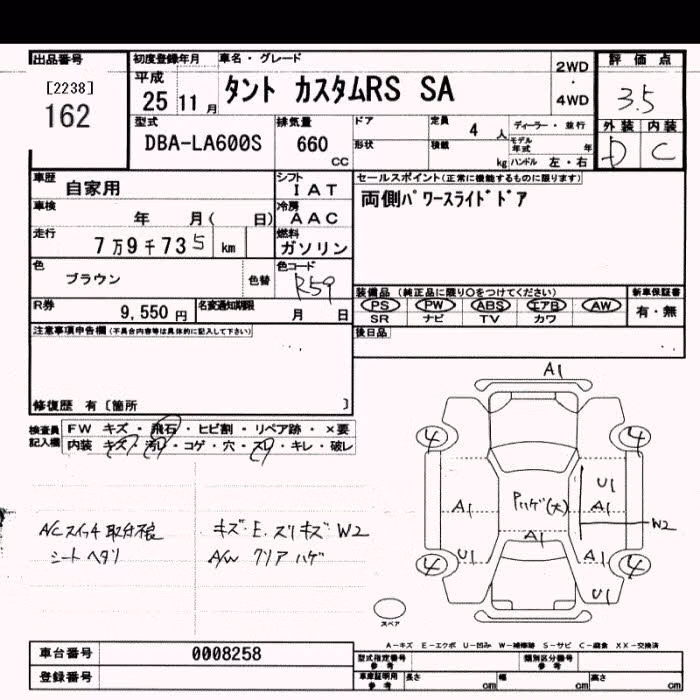 出品番号
[2238]
162
初度登録年月 車名・グレード
平成
25 11月
タント カスタムRS SA
2WD
・
4WD
評価点
3.5
外装 内装
D C
型式
DBA-LA600S
排気量
660
cc
ドア
形状
定員 4 人
積載 kg
ディーラー・並行
モデル年式 年
ハンドル 左・右
車歴
自家用
シフト
IAT
車検
年 月( 日)
冷房
AAC
走行
7万9千735 km
燃料
ガソリン
色
ブラウン
色替
色コード
R59
R券
9,550円
名変通知期限
月 日
セールスポイント(正常に機能するものに限ります)
両側パワースライドドア
装備品(純正品に限り○をつけてください)
PS PW ABS エアB AW
SR ナビ TV カワ
新車保証書
有・無
後日品
注意事項申告欄(不具合内容等は具体的に記入して下さい)
修復歴 有〔箇所 〕
検査員記入欄
FW キズ・飛石・ヒビ割・リペア跡・×要
内装 キズ・汚レ・コゲ・穴・スレ・キレ・破レ
A/Cスイッチ取付不良
シートヘタリ
キズ・E・スリキズ W2
A/W クリアハゲ
A1
4 4
U1
A1 Pハゲ(大) A1
W2
A1
U1 A1
4 4
U1
スペア
A-キズ E-エクボ U-凹み W-補修跡 S-サビ C-腐食 XX-交換済
車台番号 0008258
登録番号
型式指定番号 参考
類別区分番号 参考
車庫証明用 参考 長さ cm 幅 cm 高さ cm